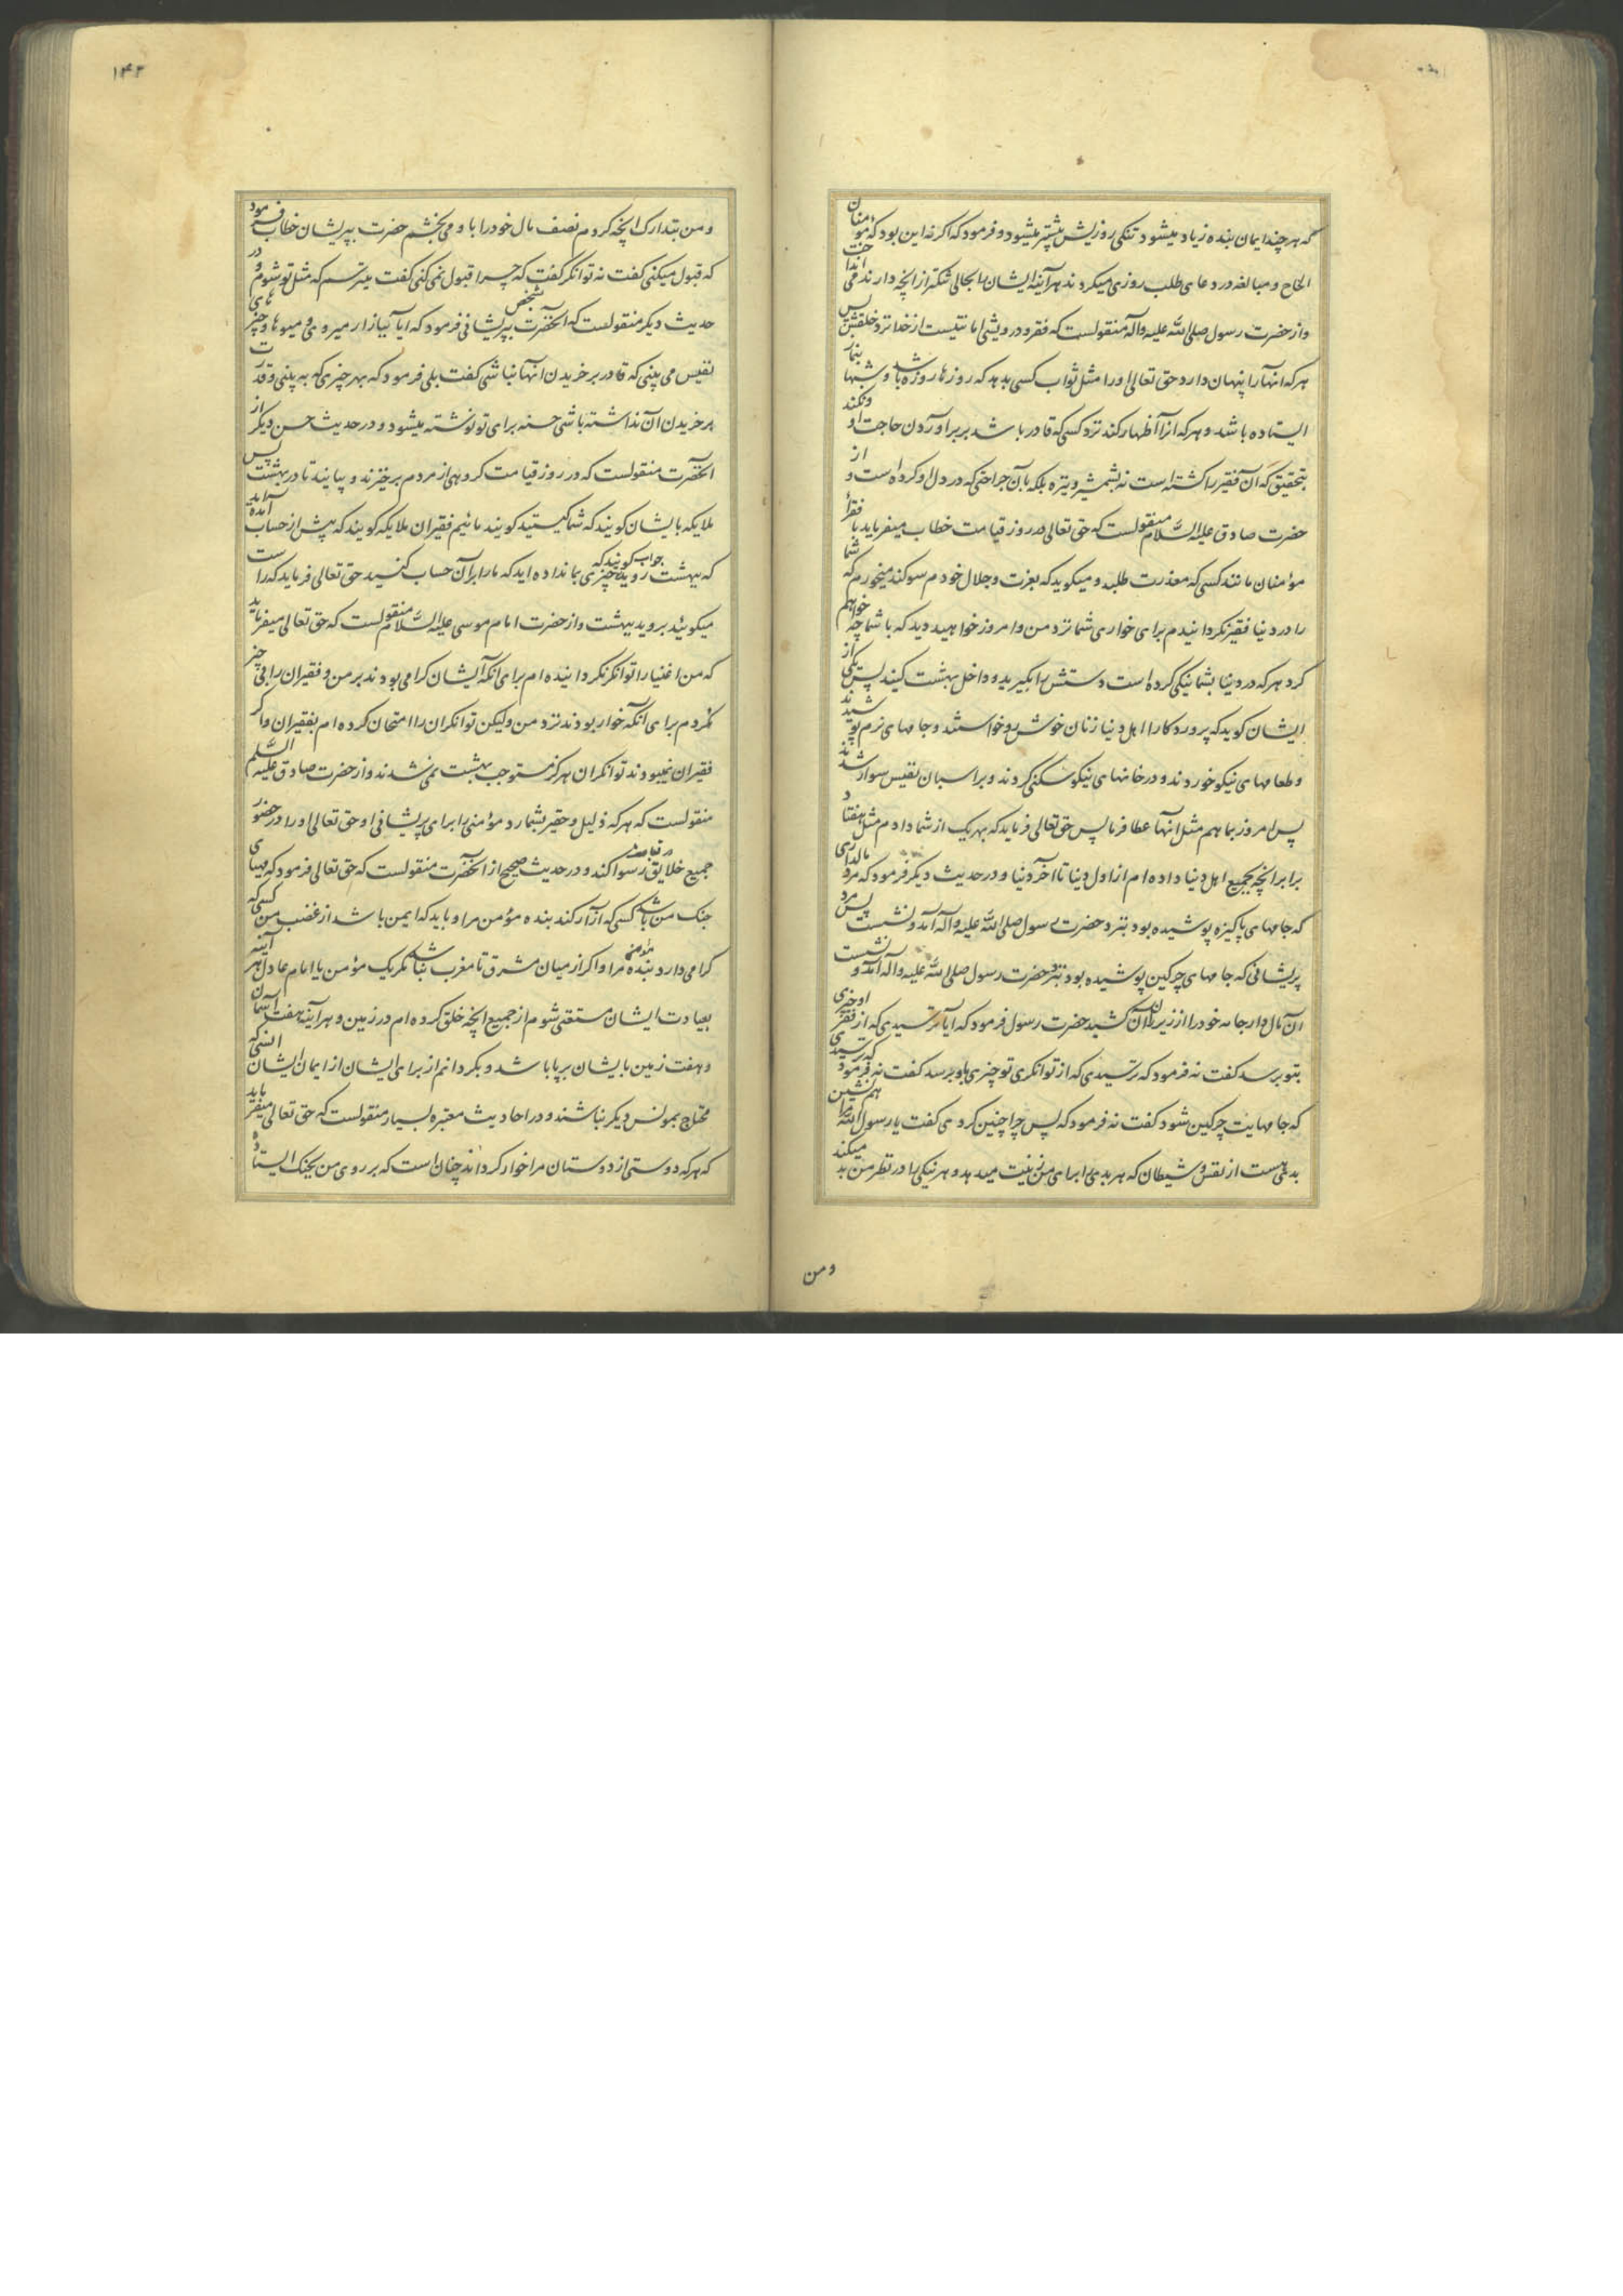 که هر چند ایمان بنده زیاد میشود تنکی روزیش بیشتر میشود و فرمود که اکر نه این بود که مؤمنان
الحاح و مبالغه در دعا و طلب روزی میکردند هر آینه ایشان را بحالی تنکتر از آنچه دارند می انداخت
و از حضرت رسول صلی الله علیه و آله منقولست که فقر و درویشی امانتیست از خدا نزد خلقش پس
هر که آنها را پنهان دارد حق تعالی او را مثل ثواب کسی بدهد که روزها روزه باشد و شبها بنماز
ایستاده باشد و هر که انرا اظهار کند نزد کسی که قادر باشد بر بر آوردن حاجت او و نکند
بتحقیق که آن فقیر را کشته است نه بشمشیر و نیزه بلکه بآن جراحتی که در دل او کرده است و از
حضرت صادق علیه السلام منقولست که حق تعالی در روز قیامت خطاب میفرماید با فقرأ
مؤمنان مانند کسی که معذرت طلبد و میکوید که بعزت و جلال خودم سوکند میخورم که شما
را در دنیا فقیر نکردانیدم برای خواری شما نزد من و امروز خواهید دید که با شما چه خواهم
کرد هر که در دنیا بشما نیکی کرده است دستش را بکیرید و داخل بهشت کنید پس یکی از
ایشان کوید که پروردکارا اهل دنیا زنان خوش رو خواستند و جامهای نرم پوشیدند
و طعامهای نیکو خوردند و در خانهای نیکو سکنی کردند و بر اسبان نفیس سوار شدند
پس امروز بما هم مثل انها عطا فرما پس حق تعالی فرماید که بهر یک از شما دادم مثل هفتاد
برابر انچه بجمیع اهل دنیا داده ام از اول دنیا تا آخر دنیا و در حدیث دیکر فرمود که مرد مالداری
که جامهای پاکیزه پوشیده بود بنزد حضرت رسول صلی الله علیه و آله آمد و نشست پس مرد
پریشانی که جامهای چرکین پوشیده بود بنزد حضرت رسول صلی الله علیه و آله آمد و نشست
ان مال دار جامه خود را از زیر ران آن کشید حضرت رسول فرمود که ایا ترسیدی که از فقر او چیزی
بتو برسد کفت نه فرمود که ترسیدی که از توانکری تو چیزی باو برسد کفت نه فرمود که ترسیدی
که جامهایت چرکین شود کفت نه فرمود که پس چرا چنین کردی کفت یا رسول الله مرا همنشین
بدی هست از نفس و شیطان که هر بدی را برای من زینت میدهد و هر نیکی را در نظر من بد میکند
و من
۱۴۲
و من بتدارک انچه کردم نصف مال خود را باو می بخشم حضرت بپریشان خطاب فرمود
که قبول میکنی کفت نه توانکر کفت که چرا قبول نمی کنی کفت میترسم که مثل تو شوم و در
حدیث دیکر منقولست که انحضرت بشخص پریشانی فرمود که ایا ببازار میروی و میوها و چیزهای
نفیس می بینی که قادر بر خریدن انها نباشی کفت بلی فرمود که بهر چیزی که به بینی و قدرت
بر خریدن ان نداشته باشی حسنه برای تو نوشته میشود و در حدیث حسن دیکر از
انحضرت منقولست که در روز قیامت کروهی از مردم بر خیزند و بیایند تا در بهشت پس
ملایکه بایشان کویند که شما کیستید کویند مائیم فقیران ملایکه کویند که پیش از حساب آمده آید
که بهشت روید جواب کویند که چیزی بما نداده اید که ما را بر آن حساب کنید حق تعالی فرماید که راست
میکویند بروید ببهشت و از حضرت امام موسی علیه السلام منقولست که حق تعالی میفرماید
که من اغنیا را توانکر نکردانیده ام برای انکه ایشان کرامی بودند بر من و فقیران را بی چیز
نکردم برای انکه خوار بودند نزد من ولیکن توانکران را امتحان کرده ام بفقیران و اکر
فقیران نمیبودند توانکران هرکز مستوجب بهشت نمی شدند و از حضرت صادق علیه السلم
منقولست که هر که ذلیل و حقیر بشمارد مؤمنی را برای پریشانی او حق تعالی او را در حضور
جمیع خلایق در قیامت رسوا کند و در حدیث صحیح از انحضرت منقولست که حق تعالی فرمود که مهیای
جنک من باشد کسی که آزار کند بنده مؤمن مرا و باید که ایمن باشد از غضب من کسی که
کرامی دارد بنده مؤمن مرا و اکر از میان مشرق تا مغرب نباشد مکر یک مؤمن با امام عادل هر آینه
بعبادت ایشان مستغنی شوم از جمیع انچه خلق کرده ام در زمین و هر آینه هفت آسمان
و هفت زمین بایشان بر پا باشد و بکردانم از برای ایشان از ایمان ایشان انسی که
محتاج بمونس دیکر نباشند و در احادیث معتبره بسیار منقولست که حق تعالی میفرماید
که هر که دوستی از دوستان مرا خوار کرداند چنان است که بر روی من بجنک ایستاده